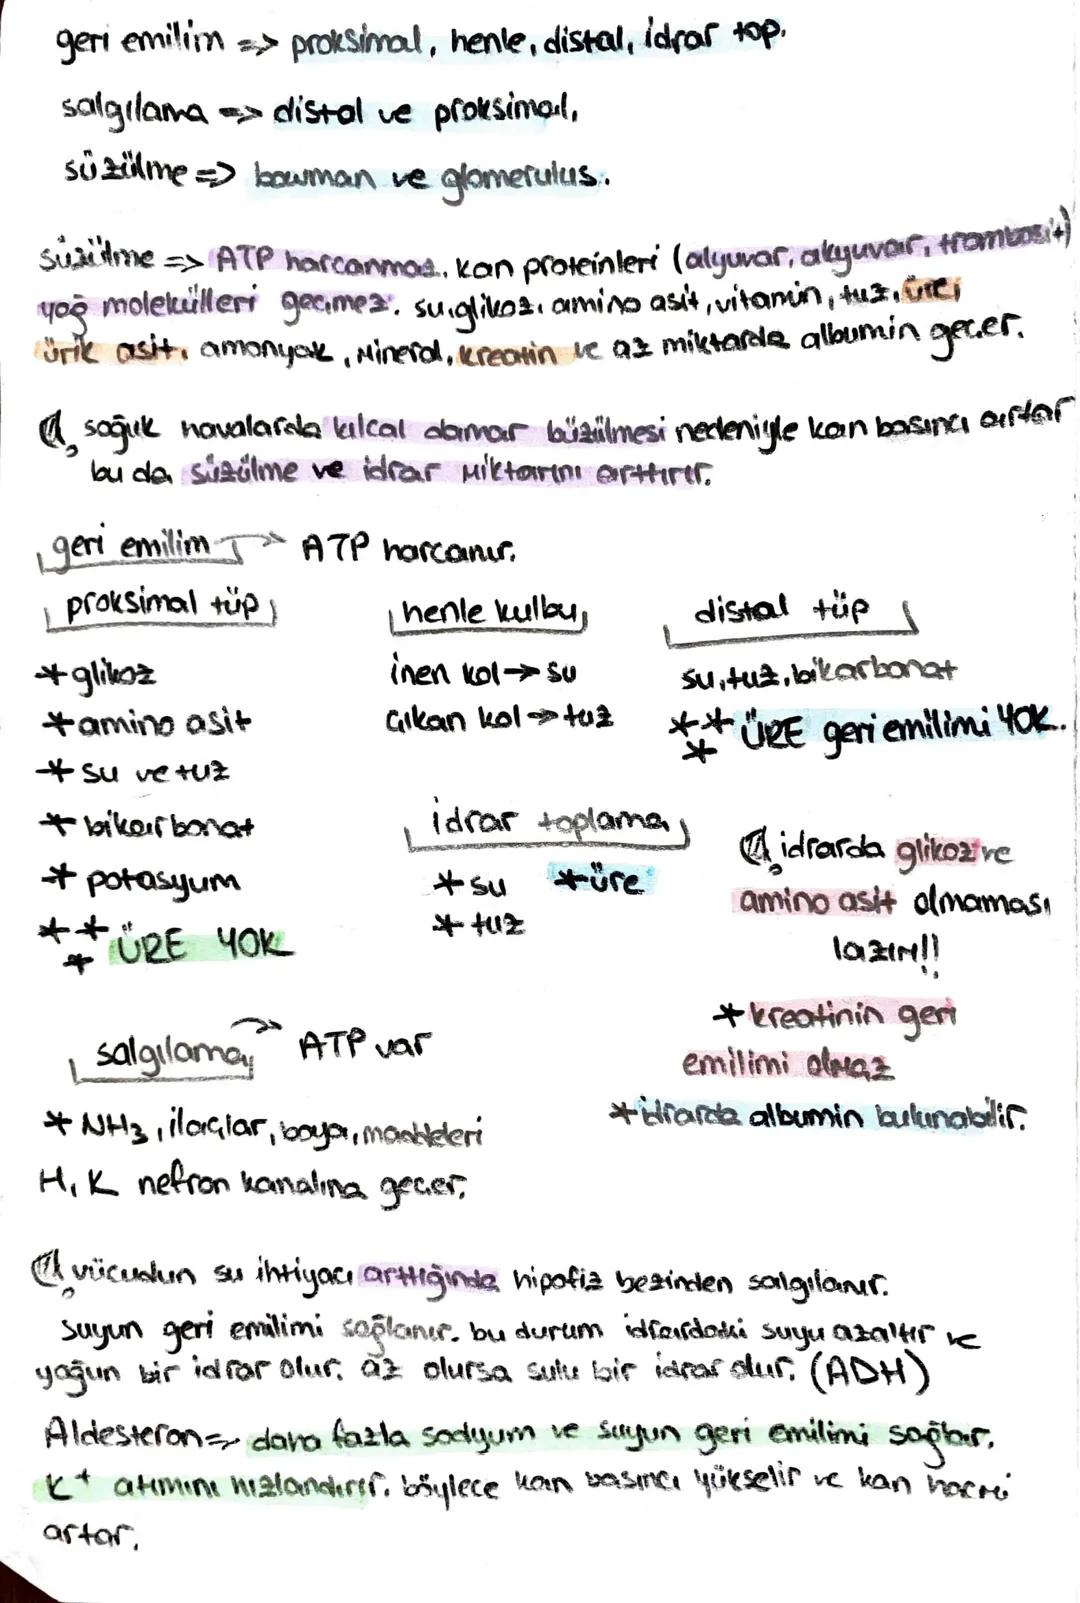 geri emilim => proksimal, henle, distal, idrar top.
salgılama => distal ve proksimal,
süzülme => bowman ve glomerulus.
süzülme => ATP harcanmaz. kan proteinleri (alyuvar, akyuvar, trombosit)
yağ molekülleri geçmez. su, glikoz, amino asit, vitamin, tuz, üre,
ürik asit, amonyak, mineral, kreatin ve az miktarda albumin geçer.
soğuk havalarda kılcal damar büzülmesi nedeniyle kan basıncı artar
bu da süzülme ve idrar miktarını arttırır.
geri emilim → ATP harcanır.
proksimal tüp henle kulbu distal tüp
*glikoz inen kol → su su, tuz, bikarbonat
*amino asit çıkan kol → tuz *** ÜRE geri emilimi YOK.
*su ve tuz
*bikarbonat idrar toplama idrarda glikoz ve
*potasyum *su *üre amino asit olmaması
*** ÜRE YOK *tuz lazım!!
*kreatinin geri
salgılama → ATP var emilimi olmaz
*NH3, ilaçlar, boya, maddeleri *idrarda albumin bulunabilir.
H, K nefron kanalına geçer.
vücudun su ihtiyacı arttığında hipofiz bezinden salgılanır.
Suyun geri emilimi sağlanır. bu durum idrardaki suyu azaltır ve
yoğun bir idrar olur. az olursa sulu bir idrar olur. (ADH)
Aldesteron => daha fazla sodyum ve suyun geri emilimi sağlar.
K+ atımını hızlandırır. böylece kan basıncı yükselir ve kan hacmi
artar.